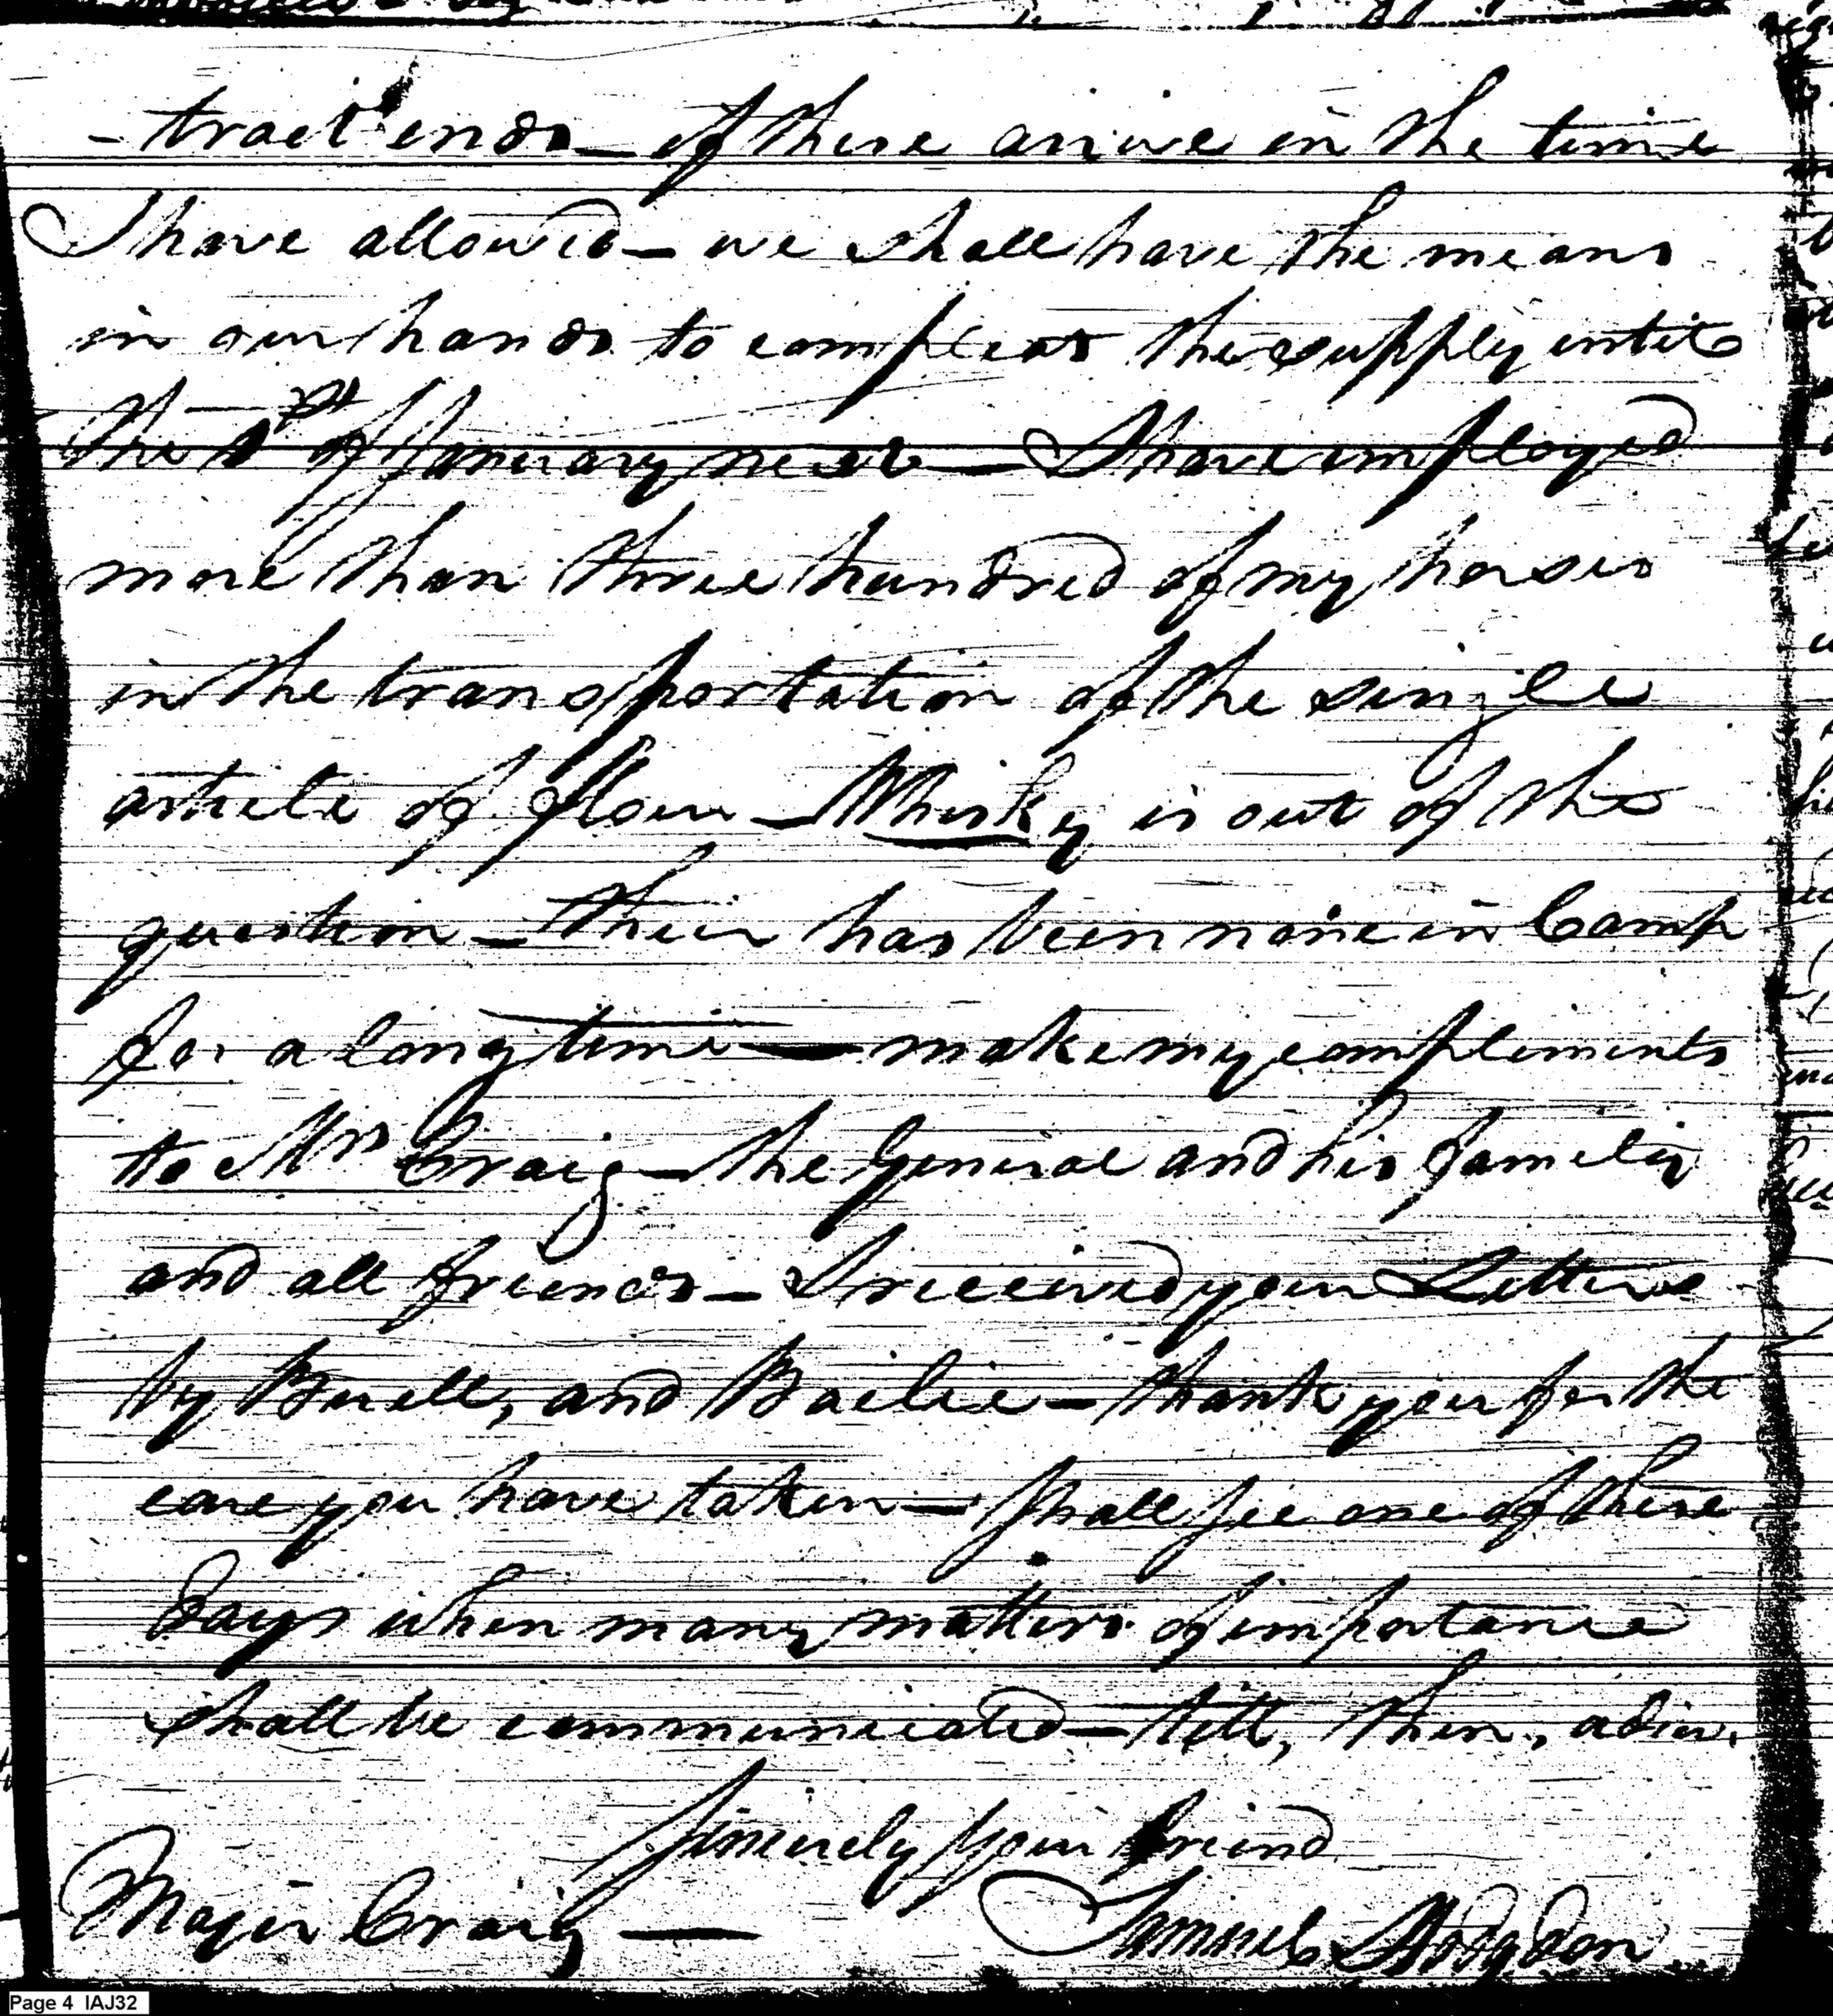 - tract ends - if these arive in the time
I have allowed - we shall have the means
in our hands to compleat the supply until
the 1st of January next - I have employed
more than three hundred of my horses
in the transportation of the single
article of flour - Whisky is out of the
question - their has been none in Camp
for a long time - make my compliments
to Mrs Craig - the General and his family
and all friends - I received your Letters
by Buell, and Bailie - thank you for the
care you have taken - shall see one of these
days when many matters of importance
shall be communicated - till, then, adieu.
Sincerely your freind
Major Craig - Samuel Hodgdon
Page 4 IAJ32